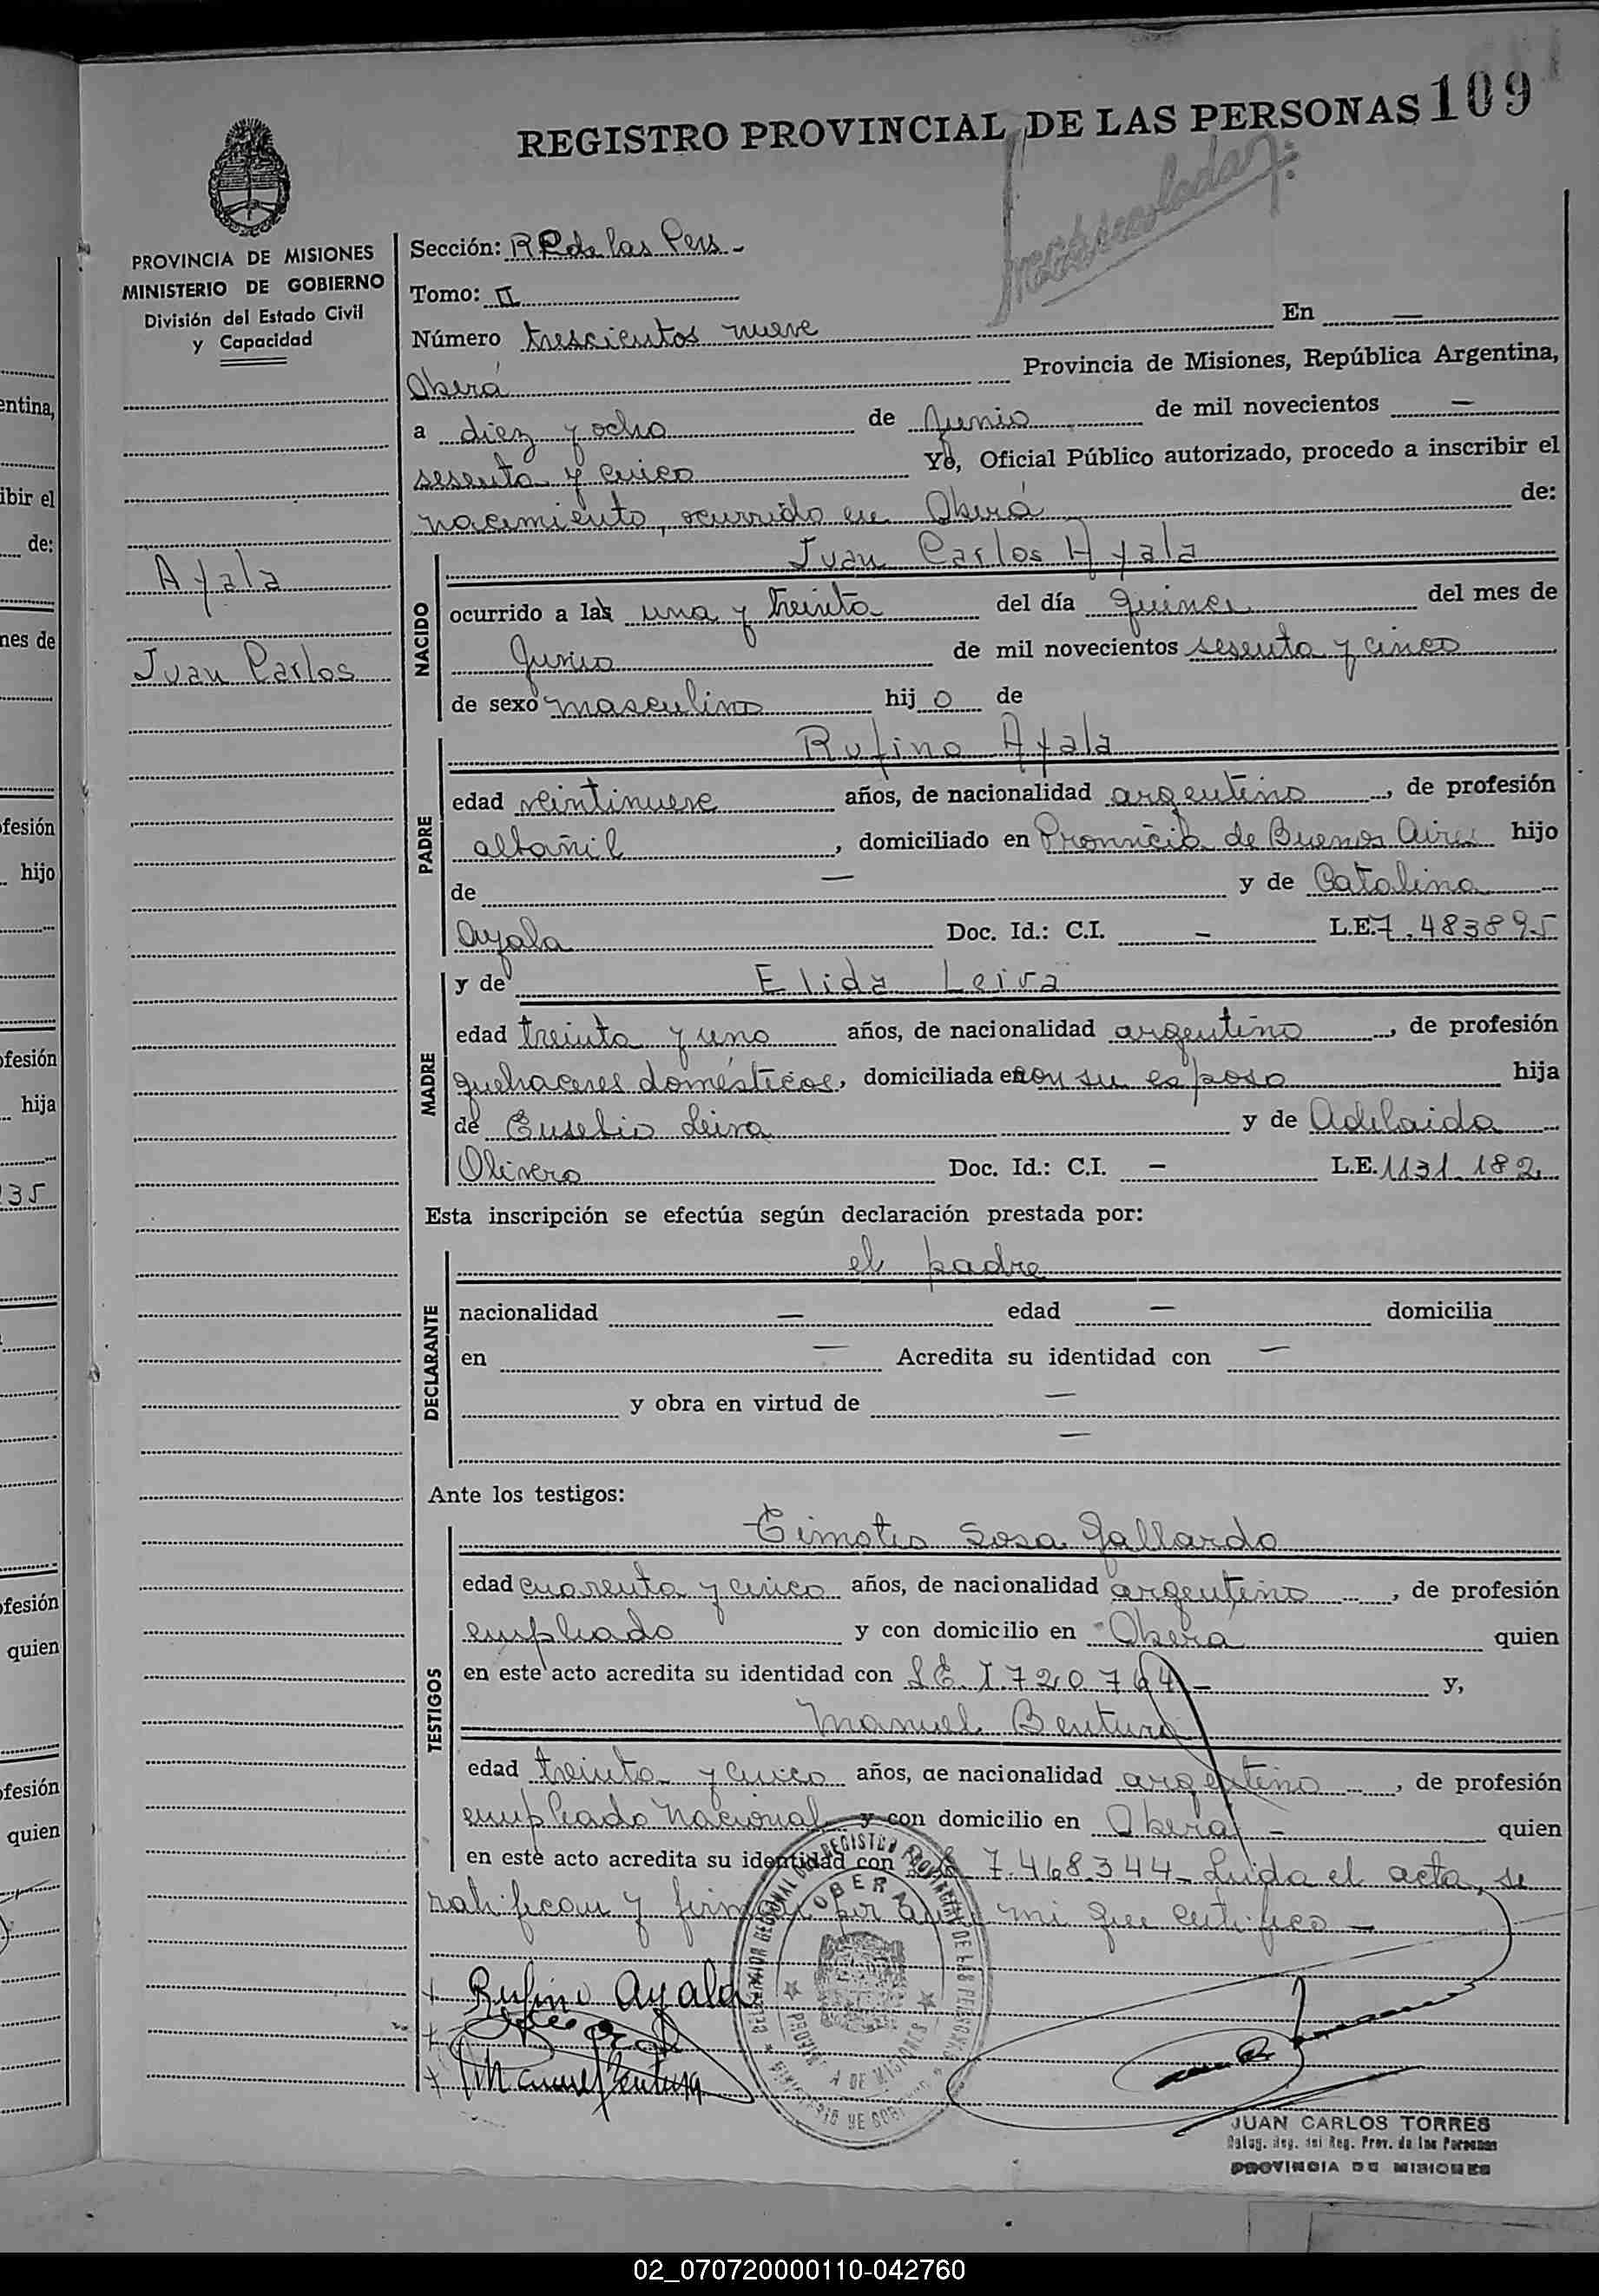 109
REGISTRO PROVINCIAL DE LAS PERSONAS
PROVINCIA DE MISIONES
MINISTERIO DE GOBIERNO
División del Estado Civil
y Capacidad
Ayala
Juan Carlos
Sección: RP de las Pers -
Tomo: II
Número trescientos nueve En —
Oberá Provincia de Misiones, República Argentina,
a diez y ocho de Junio de mil novecientos —
sesenta y cinco Yo, Oficial Público autorizado, procedo a inscribir el
nacimiento, ocurrido en Oberá de:
NACIDO
Juan Carlos Ayala
ocurrido a las una y treinta del día quince del mes de
Junio de mil novecientos sesenta y cinco
de sexo masculino hij o de
PADRE
Rufino Ayala
edad veintinueve años, de nacionalidad argentino, de profesión
albañil, domiciliado en Provincia de Buenos Aires hijo
de — y de Catalina
Ayala Doc. Id.: C.I. — L.E. 7.483895
MADRE
y de Elida Leiva
edad treinta y uno años, de nacionalidad argentino, de profesión
quehaceres domésticos, domiciliada con su esposo hija
de Eusebio Leiva y de Adelaida
Olivero Doc. Id.: C.I. — L.E. 1131.182
Esta inscripción se efectúa según declaración prestada por:
DECLARANTE
el padre
nacionalidad — edad — domicilia
en — Acredita su identidad con —
y obra en virtud de —
—
Ante los testigos:
TESTIGOS
Timoteo Sosa Gallardo
edad cuarenta y cinco años, de nacionalidad argentino, de profesión
empleado y con domicilio en Oberá quien
en este acto acredita su identidad con LE. 1.720764 - y,
Manuel Bentura
edad treinta y cinco años, de nacionalidad argentino, de profesión
empleado nacional y con domicilio en Oberá - quien
en este acto acredita su identidad con 7.468.344 - Leida el acta, se
ratifican y firman por ante mi que certifico -
+ Rufino Ayala
+
+ Manuel Bentura
DELEGACION REGIONAL DEL REGISTRO PROVINCIAL DE LAS PERSONAS
OBERA
PROVINCIA DE MISIONES
MINISTERIO DE GOBIERNO
JUAN CARLOS TORRES
Deleg. Reg. del Reg. Prov. de las Personas
PROVINCIA DE MISIONES
entina,
ibir el
de:
mes de
fesión
hijo
ofesión
hija
35
fesión
quien
ofesión
quien
02_070720000110-042760